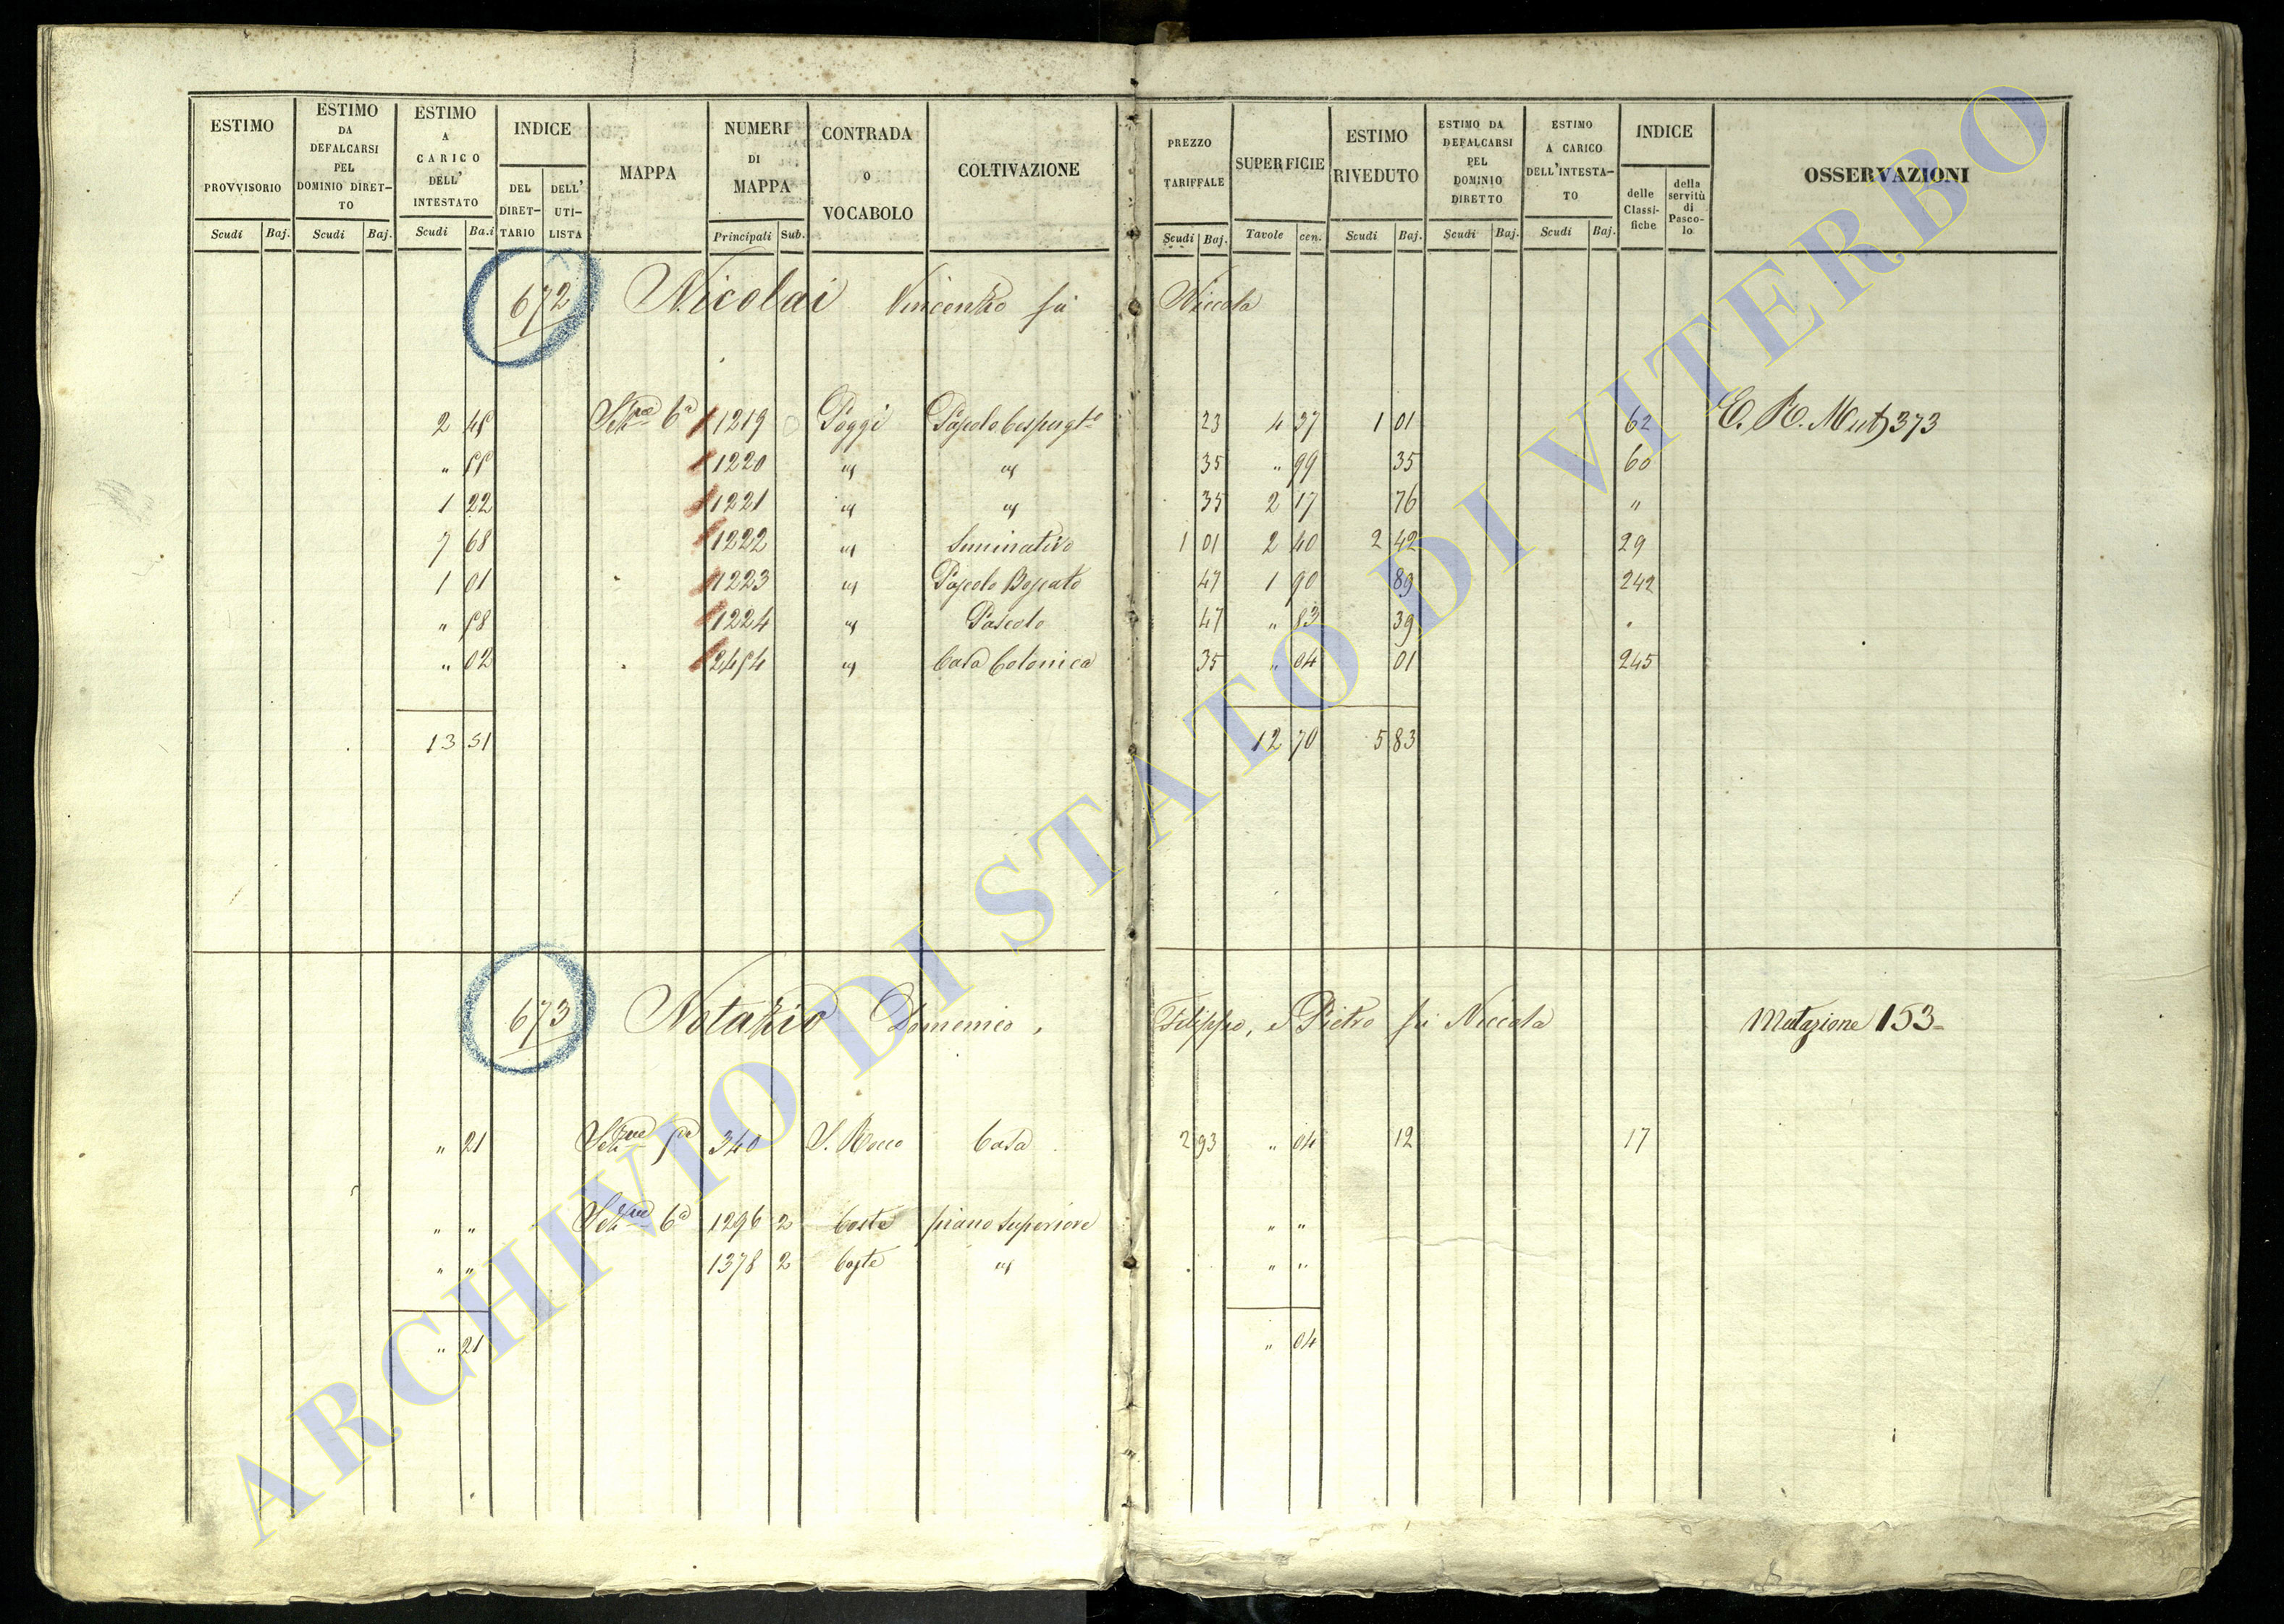 ESTIMO PROVVISORIO
ESTIMO DA DEFALCARSI PEL DOMINIO DIRET-TO
ESTIMO A CARICO DELL' INTESTATO
INDICE
DEL DIRET-TARIO
DELL' UTI-LISTA
MAPPA
NUMERI DI MAPPA
CONTRADA O VOCABOLO
COLTIVAZIONE
PREZZO TARIFFALE
SUPERFICIE
ESTIMO RIVEDUTO
ESTIMO DA DEFALCARSI PEL DOMINIO DIRETTO
ESTIMO A CARICO DELL'INTESTA-TO
INDICE
delle Classi-fiche
della servitù di Pasco-lo
OSSERVAZIONI
Scudi Baj. Scudi Baj. Scudi Ba.i Principali Sub. Scudi Baj. Tavole cen. Scudi Baj. Scudi Baj. Scudi Baj.
672 Nicolai Vincenzo fu Niccola
2 45 Sez.ne 6a 1219 Poggi Pascolo Cespugto 23 4 37 1 01 62 E. R. Mut 373
" 55 1220 " " 35 " 99 35 60
1 22 1221 " " 35 2 17 76 "
7 68 1222 " Seminativo 1 01 2 40 2 42 29
1 01 1223 " Pascolo Boscato 47 1 90 89 242
" 58 1224 " Pascolo 47 " 83 39
" 02 2454 " Casa Colonica 35 " 04 01 245
13 51 12 70 5 83
673 Notazio Domenico, Filippo, e Pietro fu Niccola Mutazione 153
" 21 Sez.ne 5a 340 S. Rocco Casa 2 93 " 04 12 17
" " Sez.ne 6a 1296 2 Coste piano superiore " "
" " 1378 2 Coste " " "
" 21 " 04
ARCHIVIO DI STATO DI VITERBO